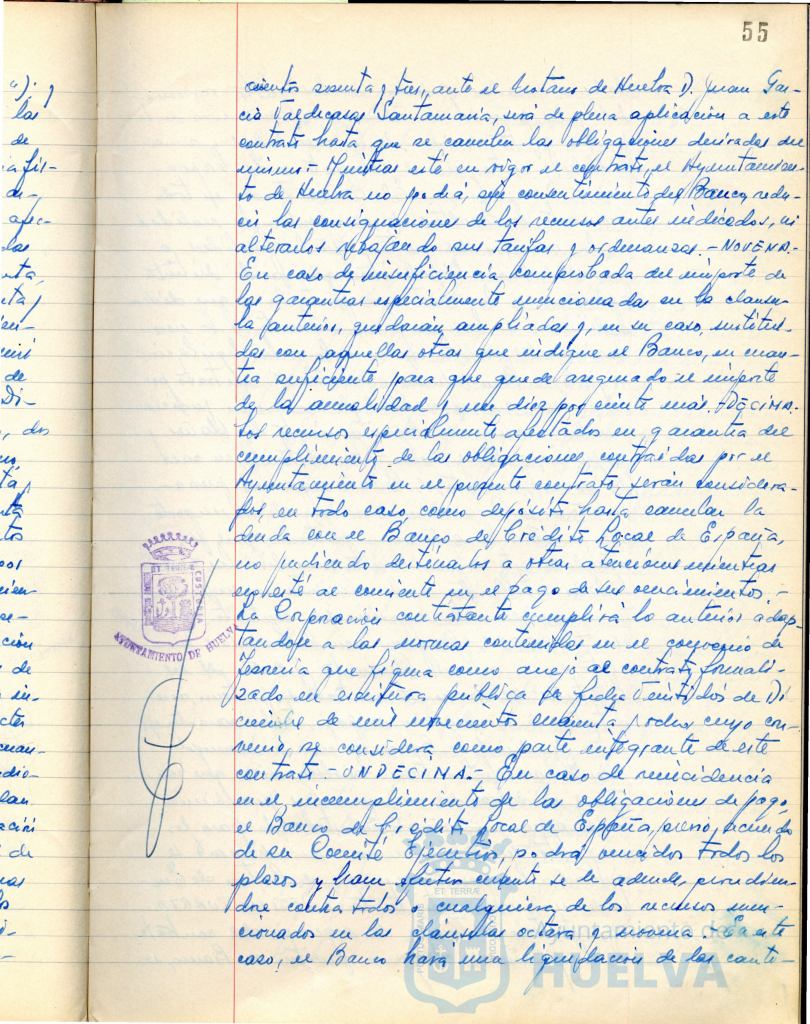 55
cientos sesenta y tres, ante el Notario de Huelva D. Juan Gar-
cía Valdecasas Santamaría, será de plena aplicación a este
contrato hasta que se cancelen las obligaciones derivadas del
mismo.- Mientras esté en vigor el contrato, el Ayuntamien-
to de Huelva no podrá, sin consentimiento del Banco, redu-
cir las consignaciones de los recursos antes indicados, ni
alterarlos rebajando sus tarifas y ordenanzas.- NOVENA.-
En caso de insuficiencia comprobada del importe de
las garantías especialmente mencionadas en la cláusu-
la anterior, quedarán ampliadas y, en su caso, sustitui-
das con aquellas otras que indique el Banco, en cuan-
tía suficiente para que quede asegurado el importe
de la anualidad y un diez por ciento más.- DECIMA.-
Los recursos especialmente afectados en garantía del
cumplimiento de las obligaciones contraídas por el
Ayuntamiento en el presente contrato, serán considera-
dos, en todo caso como depósito hasta cancelar la
deuda con el Banco de Crédito Local de España,
no pudiendo destinarlos a otras atenciones mientras
no esté al corriente en el pago de sus vencimientos.-
La Corporación contratante cumplirá lo anterior adap-
tandose a las normas contenidas en el convenio de
Tesorería que figura como anejo al contrato formali-
zado en escritura pública de fecha Veintidós de Di
ciembre de mil novecientos cincuenta y ocho, cuyo con-
venio, se considera como parte integrante de este
contrato.- UNDECIMA.- En caso de reincidencia
en el incumplimiento de las obligaciones de pago,
el Banco de Crédito Local de España, previo, acuerdo
de su Comité Ejecutivo, podrá vencidos todos los
plazos y hacer efectivo cuanto se le adeude, procedien-
dose contra todos o cualquiera de los recursos men-
cionados en las cláusulas octava y novena.- En este
caso, el Banco hará una liquidación de las canti-
ET TERRÆ CUSTODIA
AYUNTAMIENTO DE HUELVA
Ayuntamiento de
HUELVA